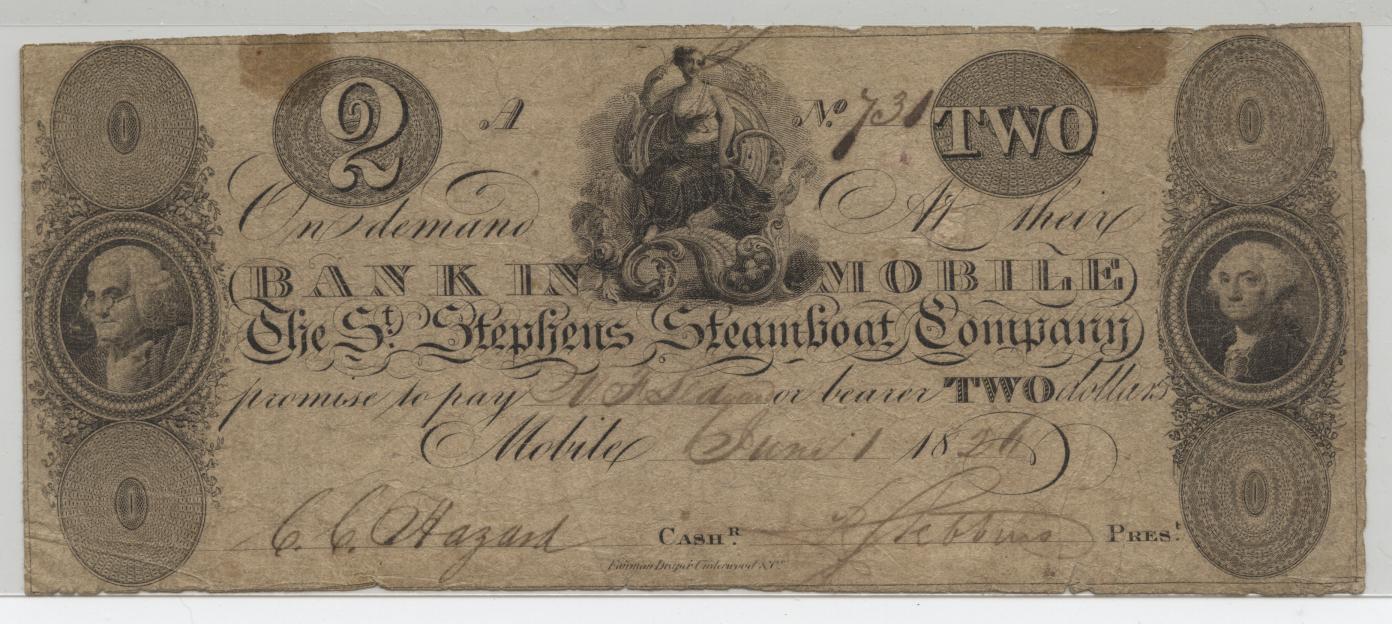 2 A No. 731 TWO
On demand At their
BANK IN MOBILE
The St. Stephens Steamboat Company
promise to pay or bearer TWO dollars
Mobile June 1 182
C. C. Hazard CASHR. PREST.
Fairman Draper Underwood & Co.